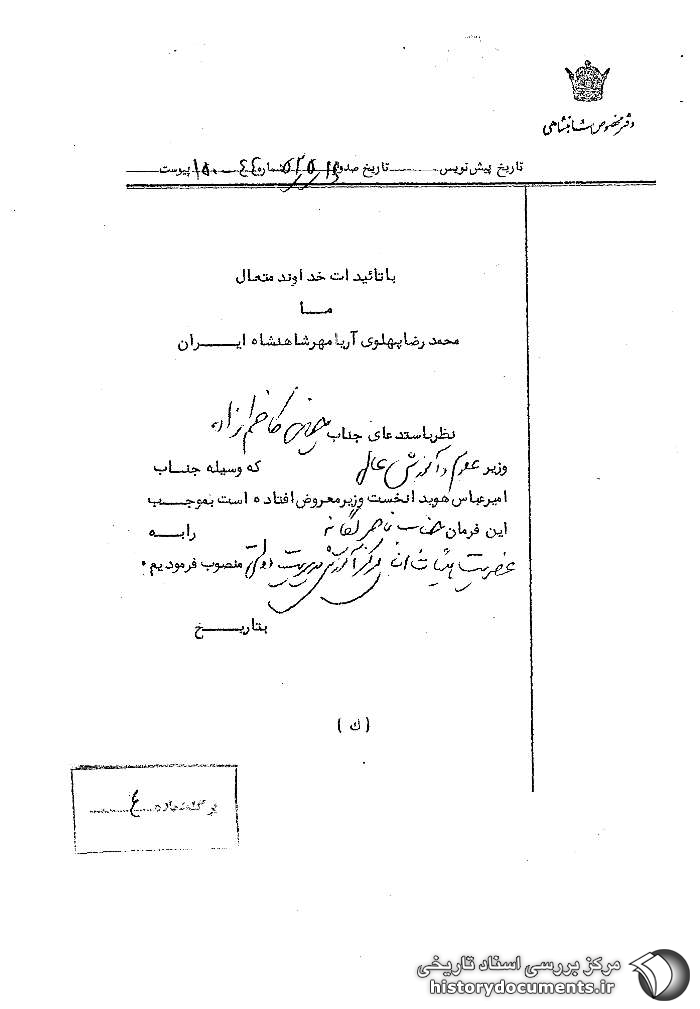 دفتر مخصوص شاهنشاهی
تاریخ پیش نویس تاریخ صدور شماره پیوست
با تائیدات خداوند متعال
مـا
محمد رضا پهلوی آریامهر شاهنشاه ایـران
نظر باستدعای جناب کاظم زاده
وزیر علوم و آموزش عالی که وسیله جناب
امیرعباس هویدا نخست وزیر معروض افتاده است بموجب
این فرمان جناب ناصر یگانه را به
عضویت هیات امنا مرکز آموزش مدیریت دولتی منصوب فرمودیم .
بتاریـخ
( ك )
برگ شماره ۴
مرکز بررسی اسناد تاریخی
historydocuments.ir